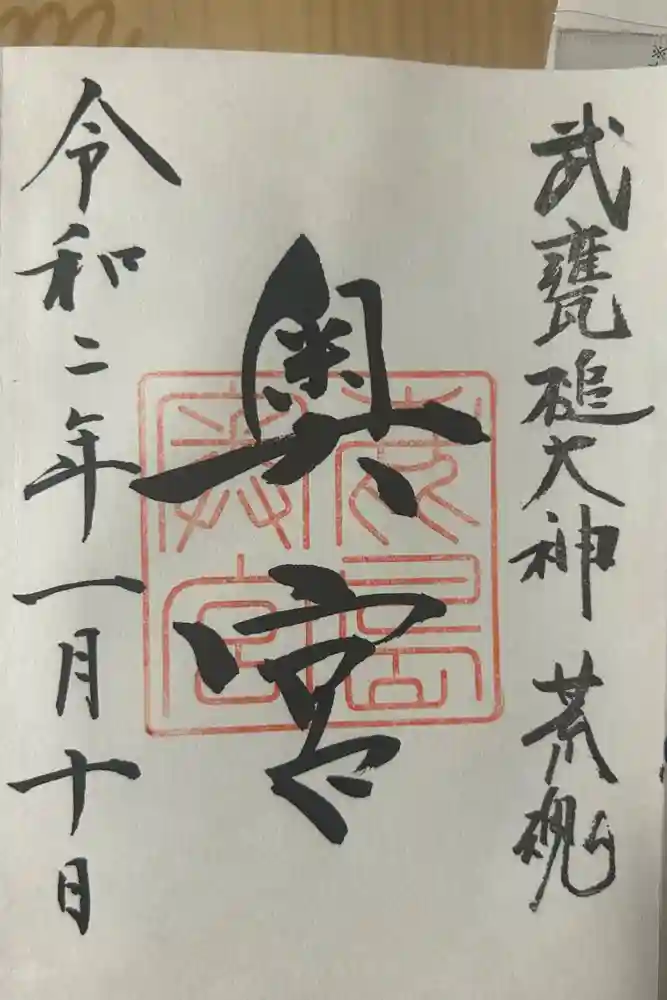 武甕槌大神 荒魂
奥宮
鹿島奥宮
令和二年一月十日